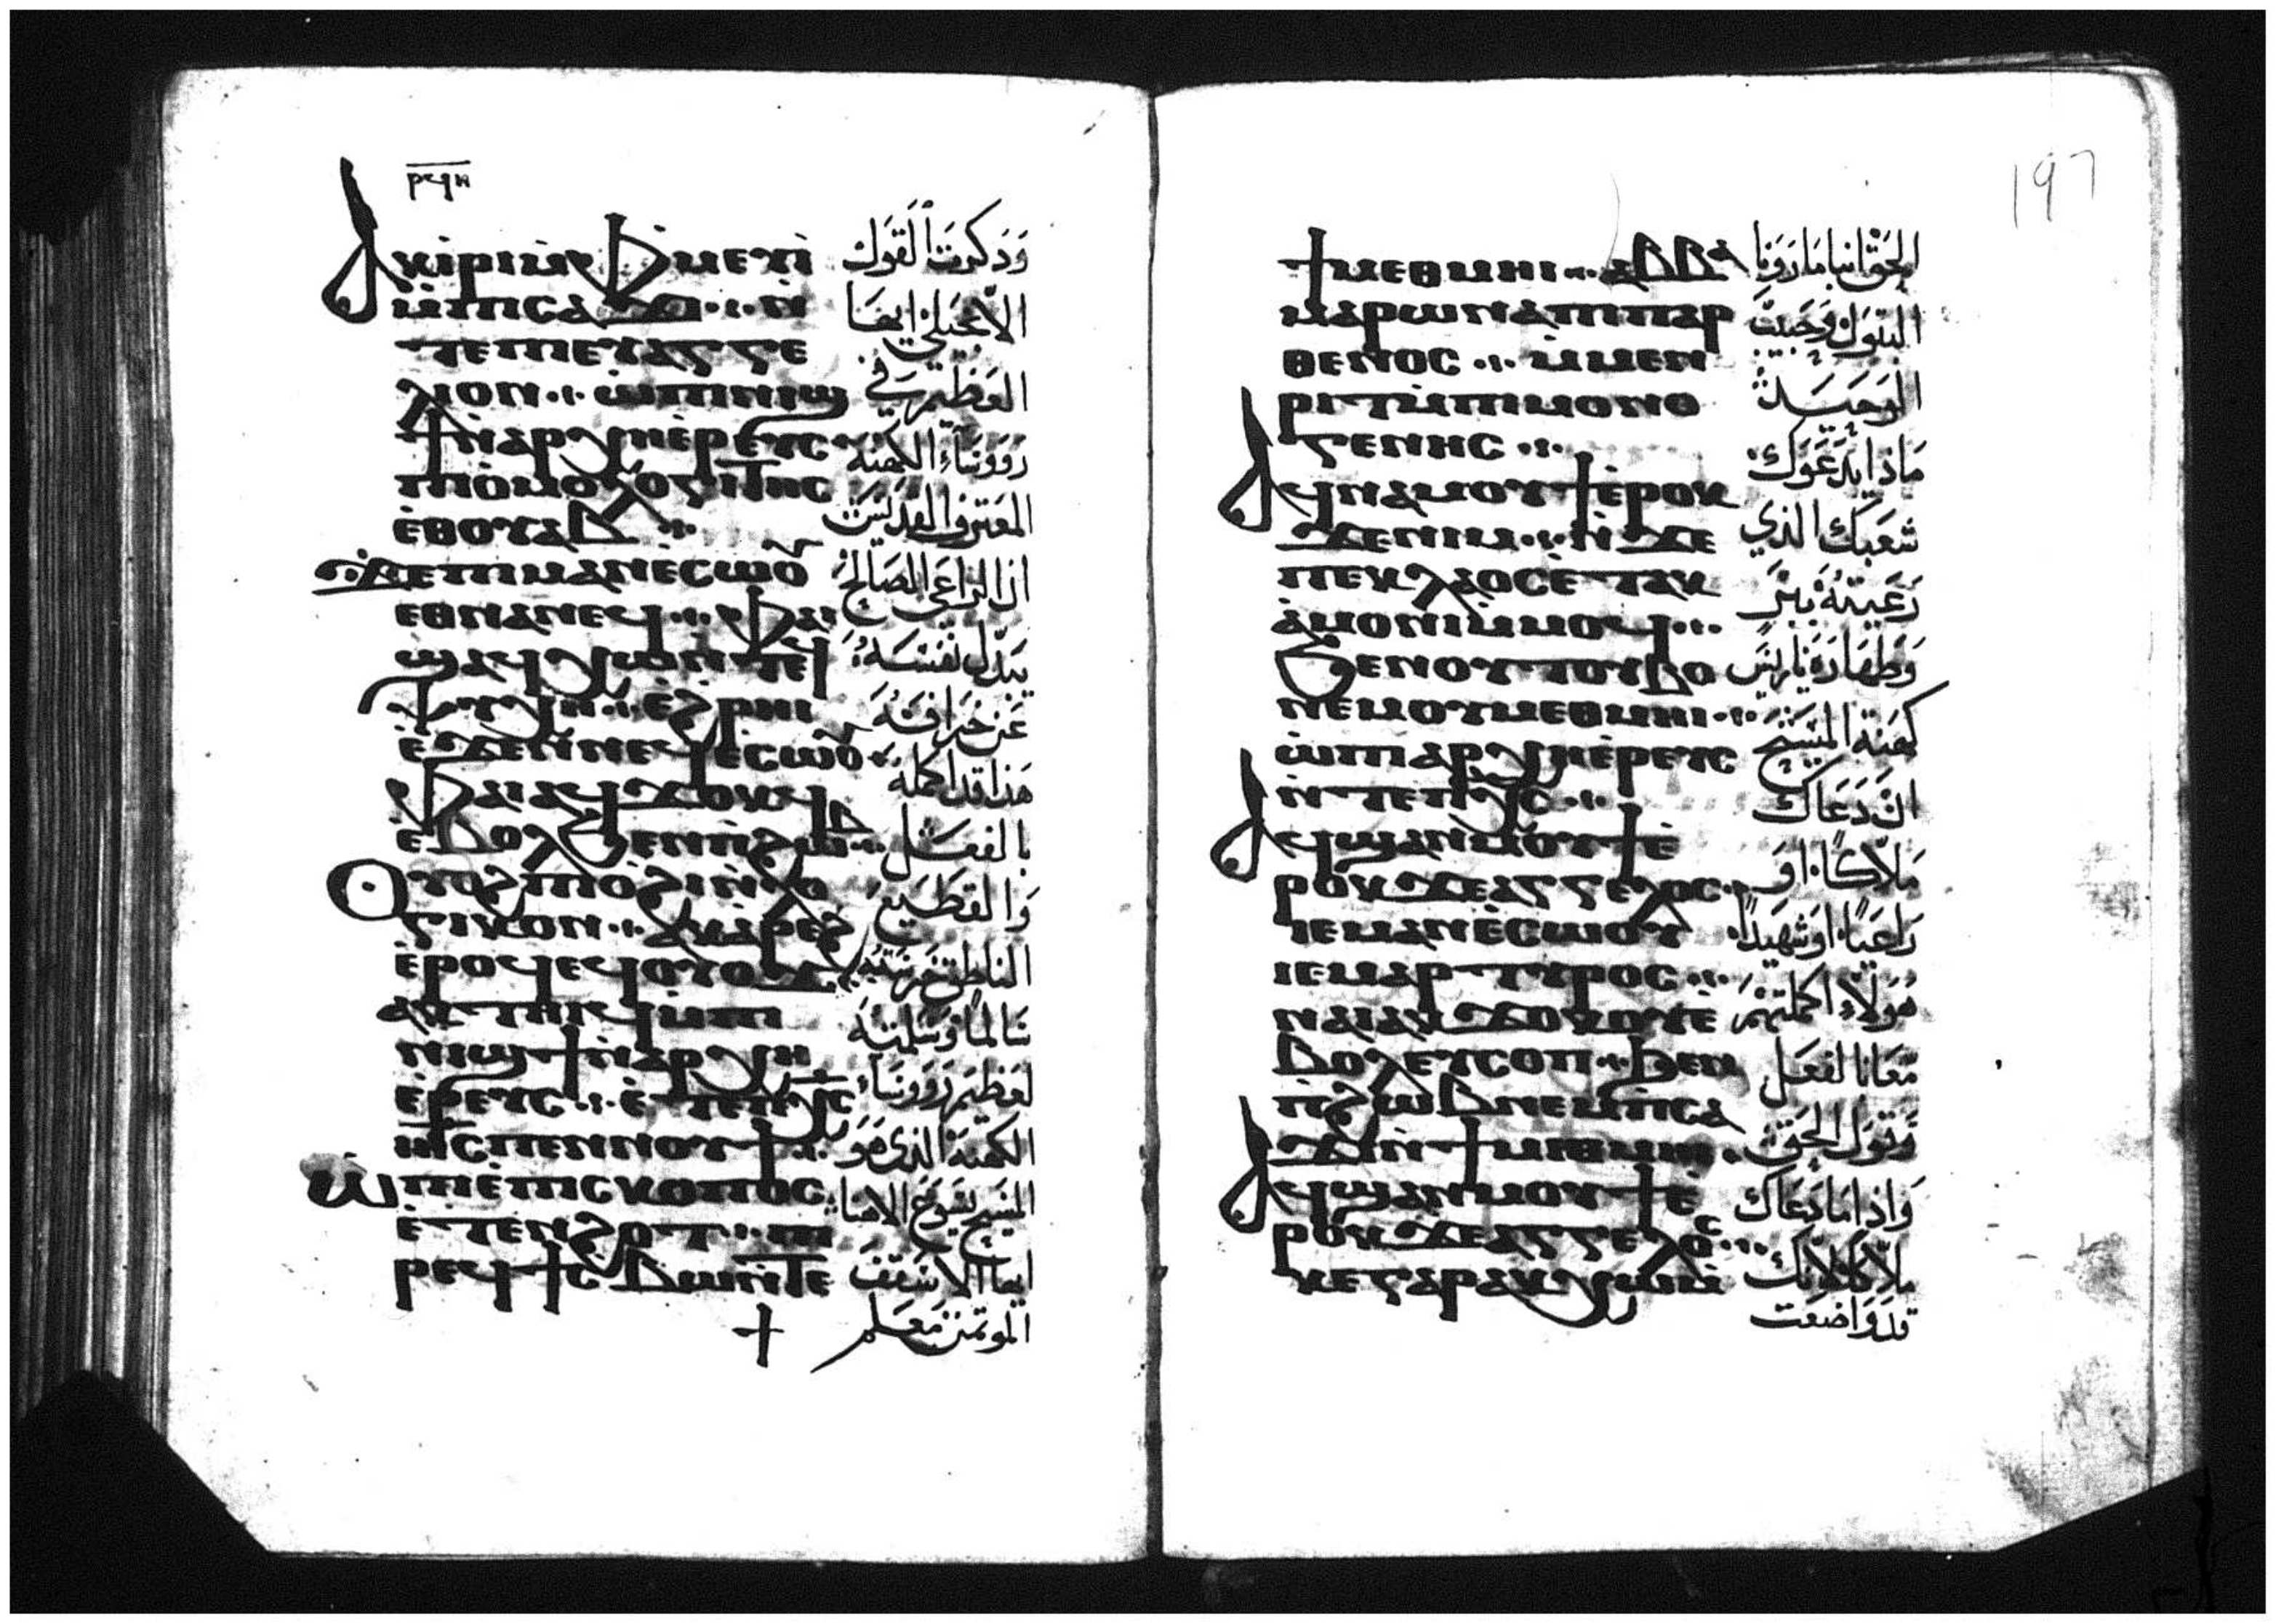 ⲣϥⲏ
ⲁⲕⲓⲣⲓ ⲙⲫⲙⲉⲩⲓ̀
ⲙ̀ⲡⲓⲥⲁϫⲓ ⲛ̀
ⲧⲉⲡⲓⲉⲩⲁⲅⲅⲉ
ⲗⲓⲟⲛ ⲱ̀ⲡⲓⲛⲓϣ
ϯⲛ̀ⲁⲣⲭⲏⲉ̀ⲣⲉⲩⲥ
ⲡⲓⲟ̀ⲙⲟⲗⲟⲅⲓⲧⲏⲥ
ⲉ̀ⲑⲟⲩⲁⲃ
ϫⲉⲡⲓⲙⲁⲛⲉ̀ⲥⲱⲟⲩ
ⲉⲑⲛⲁⲛⲉϥ ⲫⲁⲓ
ϣⲁϥⲭⲱ ⲛ̀ⲧⲉϥ
ⲯⲩⲭⲏ ⲉ̀ϩⲣⲏⲓ
ⲉ̀ϫⲉⲛⲛⲉϥⲉ̀ⲥⲱⲟⲩ
ⲫⲁⲓ ⲁϥϫⲟⲕϥ
ⲉ̀ⲃⲟⲗϧⲉⲛⲡⲓϩⲱⲃ
ⲟⲩⲟϩⲡⲓⲟϩⲓ ⲛ̀ⲗⲟ
ⲅⲓⲕⲟⲛ ⲁⲕⲁⲣⲉϩ
ⲉ̀ⲣⲟϥⲉϥⲟⲩⲟϫ
ⲁⲕⲧⲏⲓϥ ⲙ̀ⲡⲓ
ⲛⲓϣϯ ⲛ̀ⲁⲣⲭⲏ
ⲉ̀ⲣⲉⲩⲥ ⲉ̀ⲧⲉⲡⲭⲥ
ⲓⲏⲥⲡⲉⲛⲛⲟⲩϯ
ⲱ̀ⲡⲓⲉ̀ⲡⲓⲥⲕⲟⲡⲟⲥ
ⲉ̀ⲧⲉⲛϩⲟⲧ ⲡⲓ
ⲣⲉϥϯⲥⲃⲱ ⲛ̀ⲧⲉ
وَذكرت القَول
الانجيلي ايضا
العَظيم في
رووسَاء الكهنه
المعترف القديس
ان الراعي الصَالح
يبدل نفسَه
عَن خرَافه
هَذا قد اكمله
بالفعَل
وَالقطيع
الناطق
سَالماً وسَلمته
لعَظيم رووسَاء
الكهنه الذي هو
المسيح يسَوع الاهنا
ايها الاسَقف
الموتمن معَلم
197
ϯⲙⲉⲑⲙⲏⲓ ⲁⲃⲃⲁ
ⲙⲁⲣⲱⲛⲁ ⲡⲓⲡⲁⲣ
ⲑⲉⲛⲟⲥ ⲡⲓⲙⲉⲛ
ⲣⲓⲧ ⲙ̀ⲡⲓⲙⲟⲛⲟ
ⲅⲉⲛⲏⲥ
ⲁϥⲛⲁⲙⲟⲩϯⲉ̀ⲣⲟⲕ
ϫⲉⲛⲓⲙ ⲛ̀ϫⲉ
ⲡⲉⲕⲗⲁⲟⲥ ⲉ̀ⲧⲁⲕ
ⲁ̀ⲙⲟⲛⲓⲙ̀ⲙⲟϥ
ϧⲉⲛⲟⲩⲧⲟⲩⲃⲟ
ⲛⲉⲙⲟⲩⲙⲉⲑⲙⲏⲓ
ⲱ̀ⲡⲓⲁⲣⲭⲏⲉ̀ⲣⲉⲩⲥ
ⲛ̀ⲧⲉⲡⲭⲥ
ⲁϥϣⲁⲛⲙⲟⲩϯⲉ̀
ⲣⲟⲕ ϫⲉⲁⲅⲅⲉⲗⲟⲥ
ⲓⲉⲙⲁⲛⲉ̀ⲥⲱⲟⲩ
ⲓⲉⲙⲁⲣⲧⲩⲣⲟⲥ
ⲛⲁⲓ ⲁⲕϫⲟⲕⲟⲩⲉ̀
ⲃⲟⲗⲉⲩⲥⲟⲡ ϧⲉⲛ
ⲡⲓϩⲱⲃ ⲛⲉⲙⲡⲓⲥⲁ
ϫⲓ ⲛ̀ϯⲙⲉⲑⲙⲏⲓ
ⲁϥϣⲁⲛⲙⲟⲩϯⲉ̀
ⲣⲟⲕ ϫⲉⲁⲅⲅⲉⲗⲟⲥ
ⲕⲉⲅⲁⲣⲁⲕⲭⲱ
الحق انبا مَارَونا
البتول وحَبيب
الوحَيد
مَاذا يدعَوك
شعَبك الذي
رَعَيته ببر
وَطهَارة يا ريس
كهنة المسَيح
ان دَعَاك
مَلاكا او
رَاعياً او شهيداً
هَولاء اكملتهم
معَا بالفعَل
وَقول الحق
وَاذا مَا دَعَاك
ملاكا لانك
قد وَاضعَت